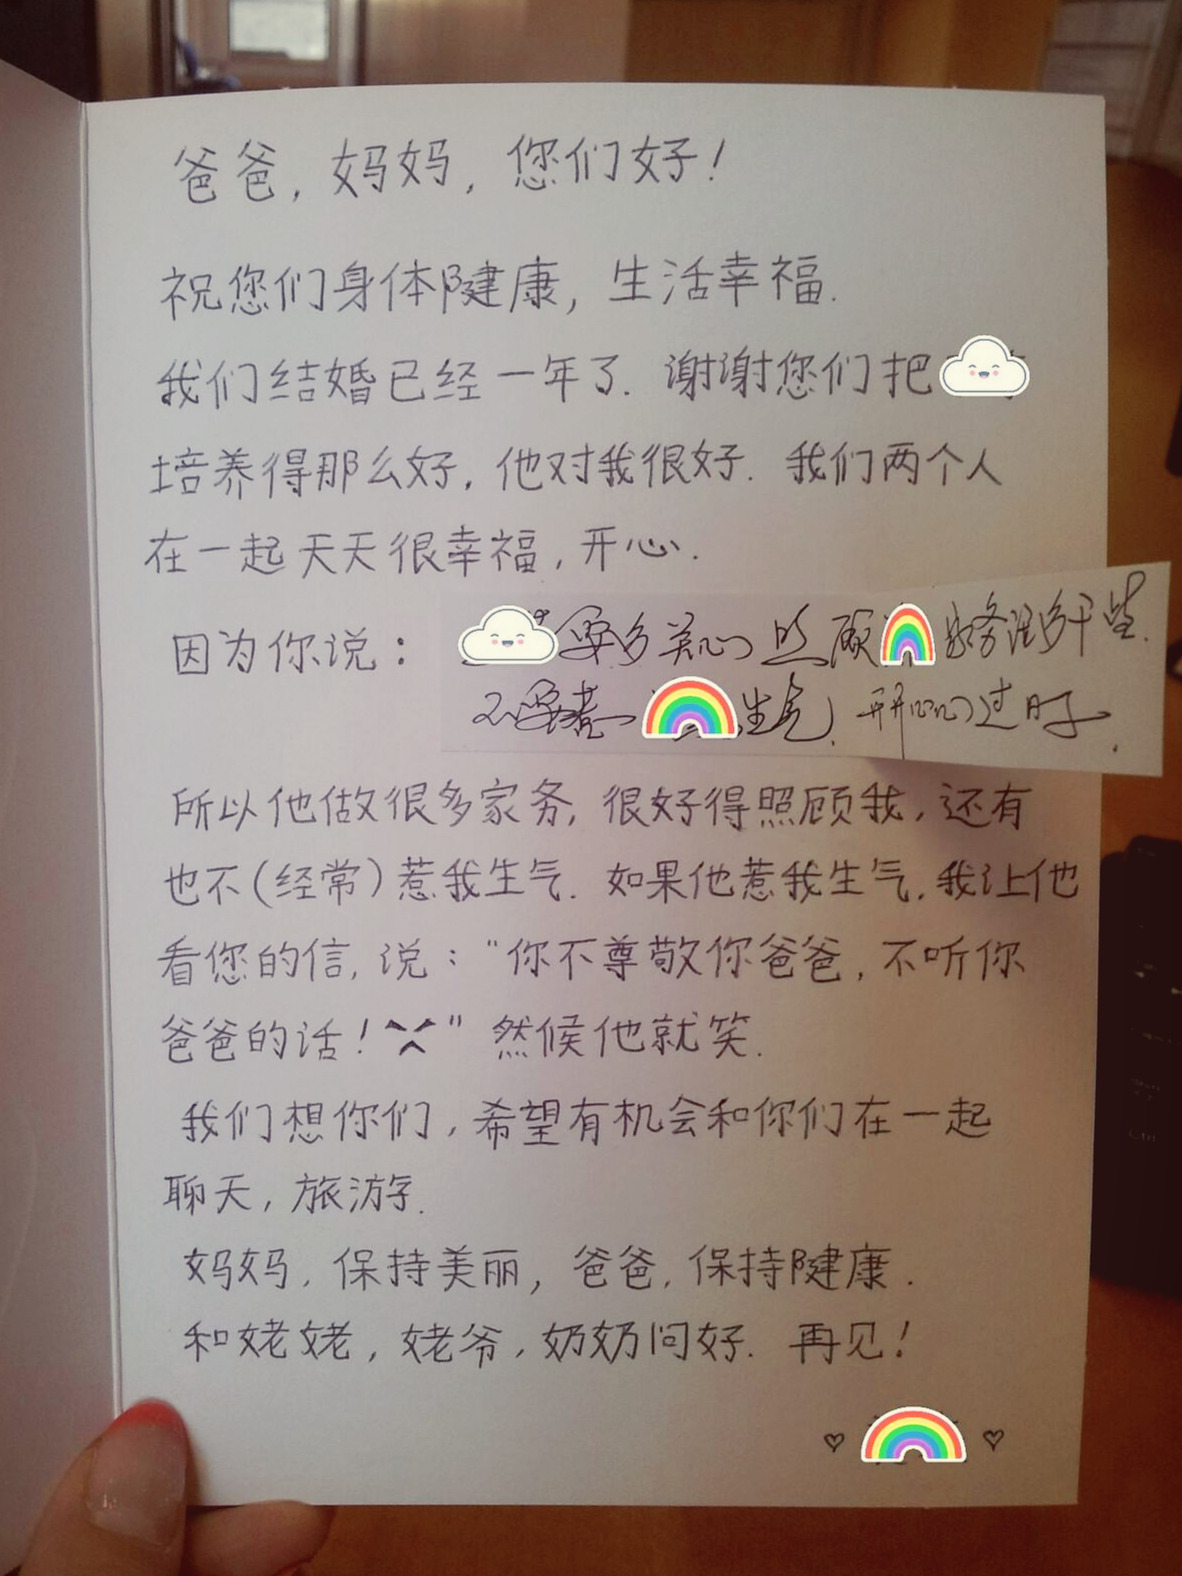 爸爸,妈妈,您们好!
祝您们身体健康,生活幸福.
我们结婚已经一年了.谢谢您们把
培养得那么好,他对我很好.我们两个人
在一起天天很幸福,开心.
因为你说:
要多关心照顾 家务活多干些.
不要惹 生气,开开心心过日子.
所以他做很多家务,很好得照顾我,还有
也不(经常)惹我生气.如果他惹我生气,我让他
看您的信,说:"你不尊敬你爸爸,不听你
爸爸的话!"然候他就笑.
我们想你们,希望有机会和你们在一起
聊天,旅游.
妈妈,保持美丽,爸爸,保持健康.
和姥姥,姥爷,奶奶问好.再见!